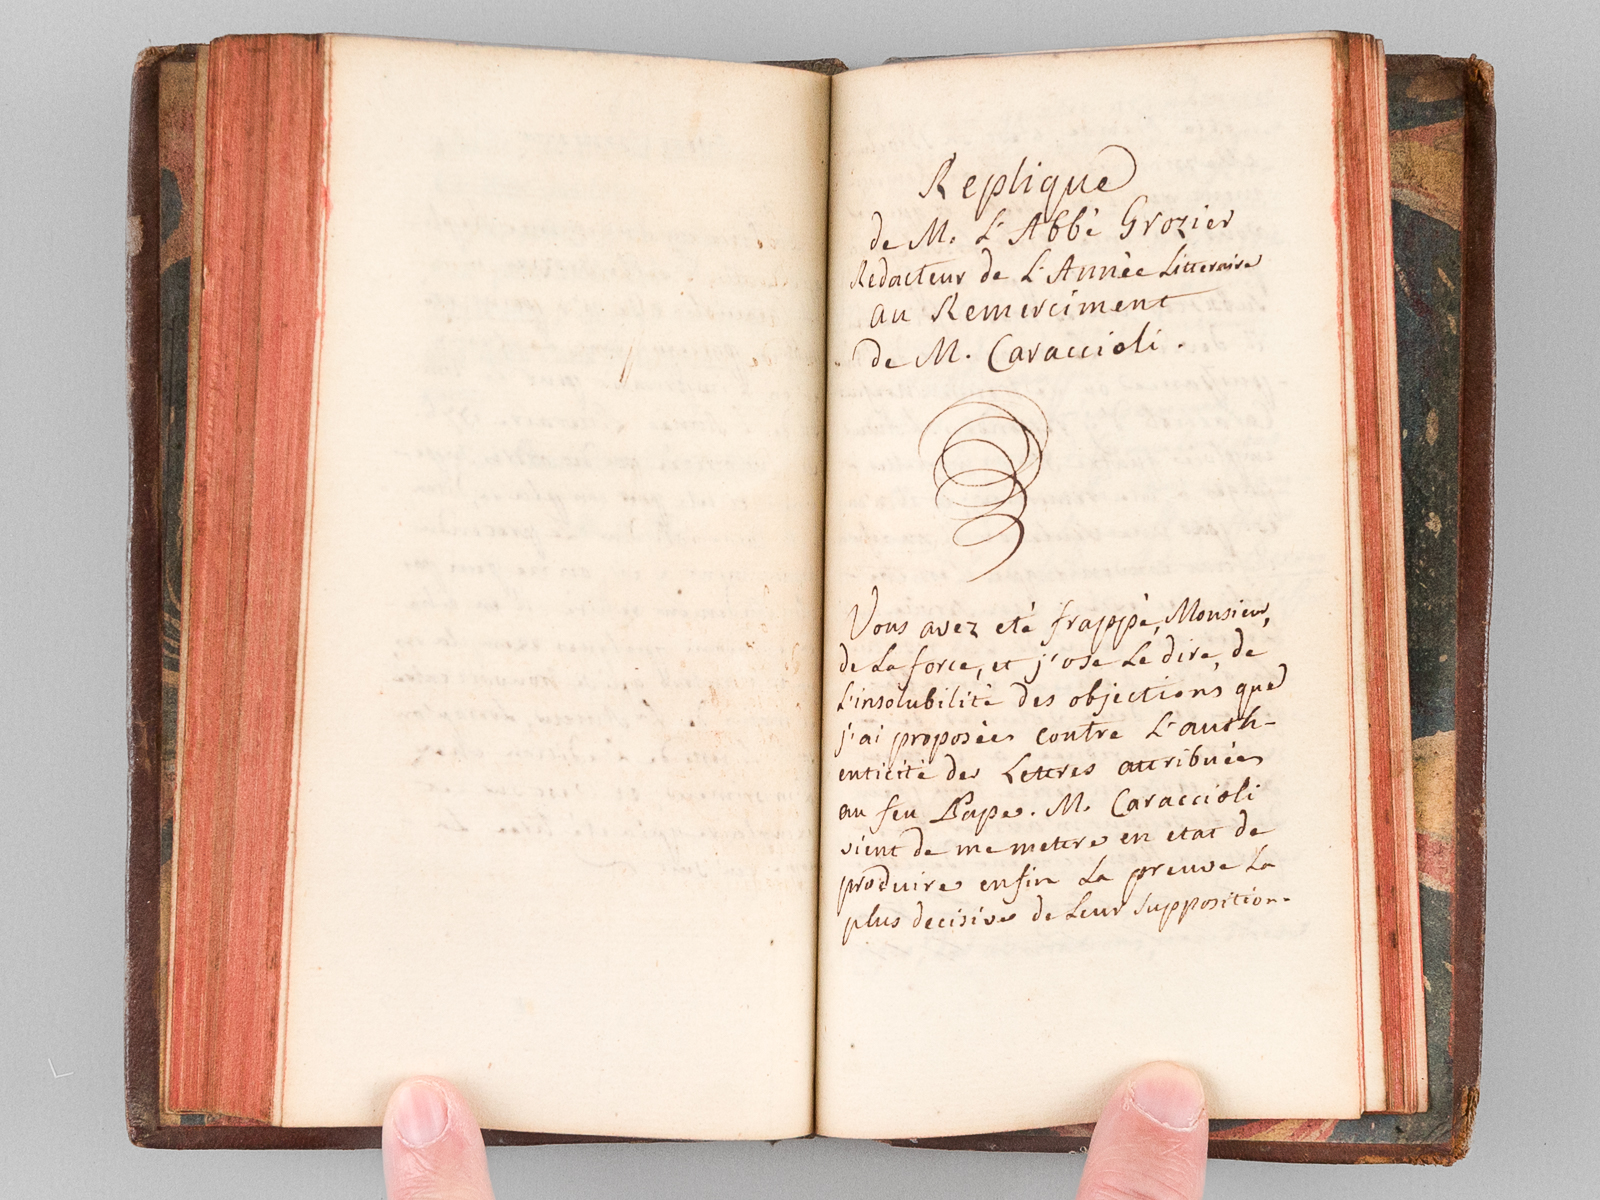 Replique
de M. L'Abbé Grozier
Redacteur de L'Année Litteraire
au Remerciment
de M. Caraccioli.
Vous avez eté frappé, Monsieur,
de La force, et j'ose Le dire, de
L'insolubilité des objections que
j'ai proposées contre L'auth-
enticité des Lettres attribuées
au feu Pape. M. Caraccioli
vient de me mettre en etat de
produire enfin La preuve La
plus decisive de Leur Supposition.